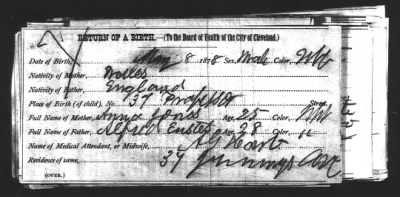 RETURN OF A BIRTH. (To the Board of Health of the City of Cleveland.)
Date of Birth, May 8 1878 Sex, Male Color, Wh
Nativity of Mother, Wales
Nativity of Father, England
Place of Birth (of child), No. 37 Prospect Street.
Full Name of Mother, Anna Jones Age, 25 Color, Wh
Full Name of Father, Alfred Age, 28 Color, "
Name of Medical Attendant, or Midwife, Hart
Residence of same, 39 Jennings Ave
(OVER.)